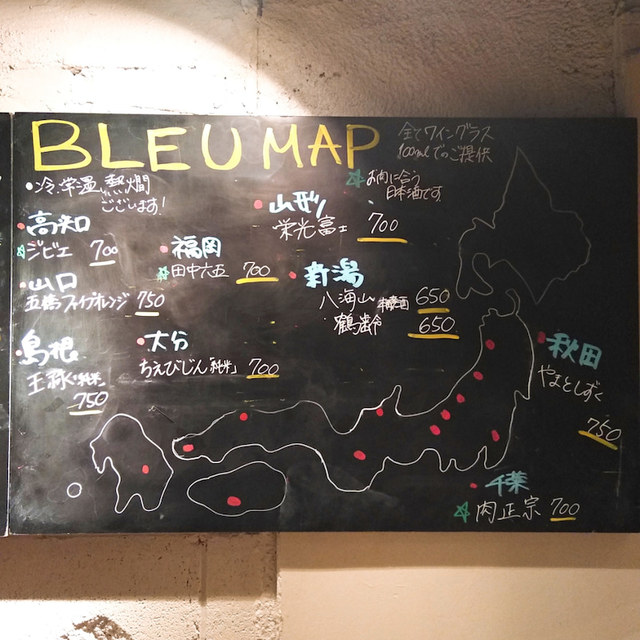 BLEU MAP
全てワイングラス
100mlでのご提供
☆お肉に合う
日本酒です
・冷、常温、熱燗
ございます!
・高知
☆ジビエ 700
・山口
五橋ファイブオレンジ 750
・島根
王祿「純米」
750
・福岡
☆田中六五 700
・大分
ちえびじん「純米」 700
・山形
栄光富士 700
・新潟
八海山 650
鶴齢 650
・秋田
やまとしずく
750
・千葉
☆肉正宗 700